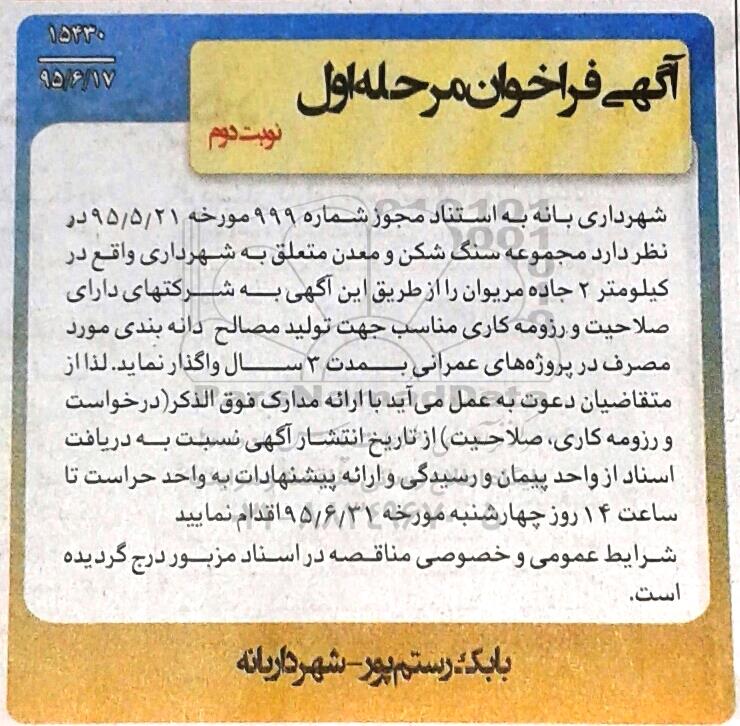 ۱۵۴۳۰
۹۵/۶/۱۷
آگهی فراخوان مرحله اول
نوبت دوم
شهرداری بانه به استناد مجوز شماره ۹۹۹ مورخه ۹۵/۵/۲۱ در
نظر دارد مجموعه سنگ شکن و معدن متعلق به شهرداری واقع در
کیلومتر ۲ جاده مریوان را از طریق این آگهی به شرکتهای دارای
صلاحیت و رزومه کاری مناسب جهت تولید مصالح دانه بندی مورد
مصرف در پروژه‌های عمرانی بمدت ۳ سال واگذار نماید. لذا از
متقاضیان دعوت به عمل می‌آید با ارائه مدارک فوق الذکر(درخواست
و رزومه کاری، صلاحیت) از تاریخ انتشار آگهی نسبت به دریافت
اسناد از واحد پیمان و رسیدگی و ارائه پیشنهادات به واحد حراست تا
ساعت ۱۴ روز چهارشنبه مورخه ۹۵/۶/۳۱ اقدام نمایید
شرایط عمومی و خصوصی مناقصه در اسناد مزبور درج گردیده
است.
بابک رستم پور - شهردار بانه